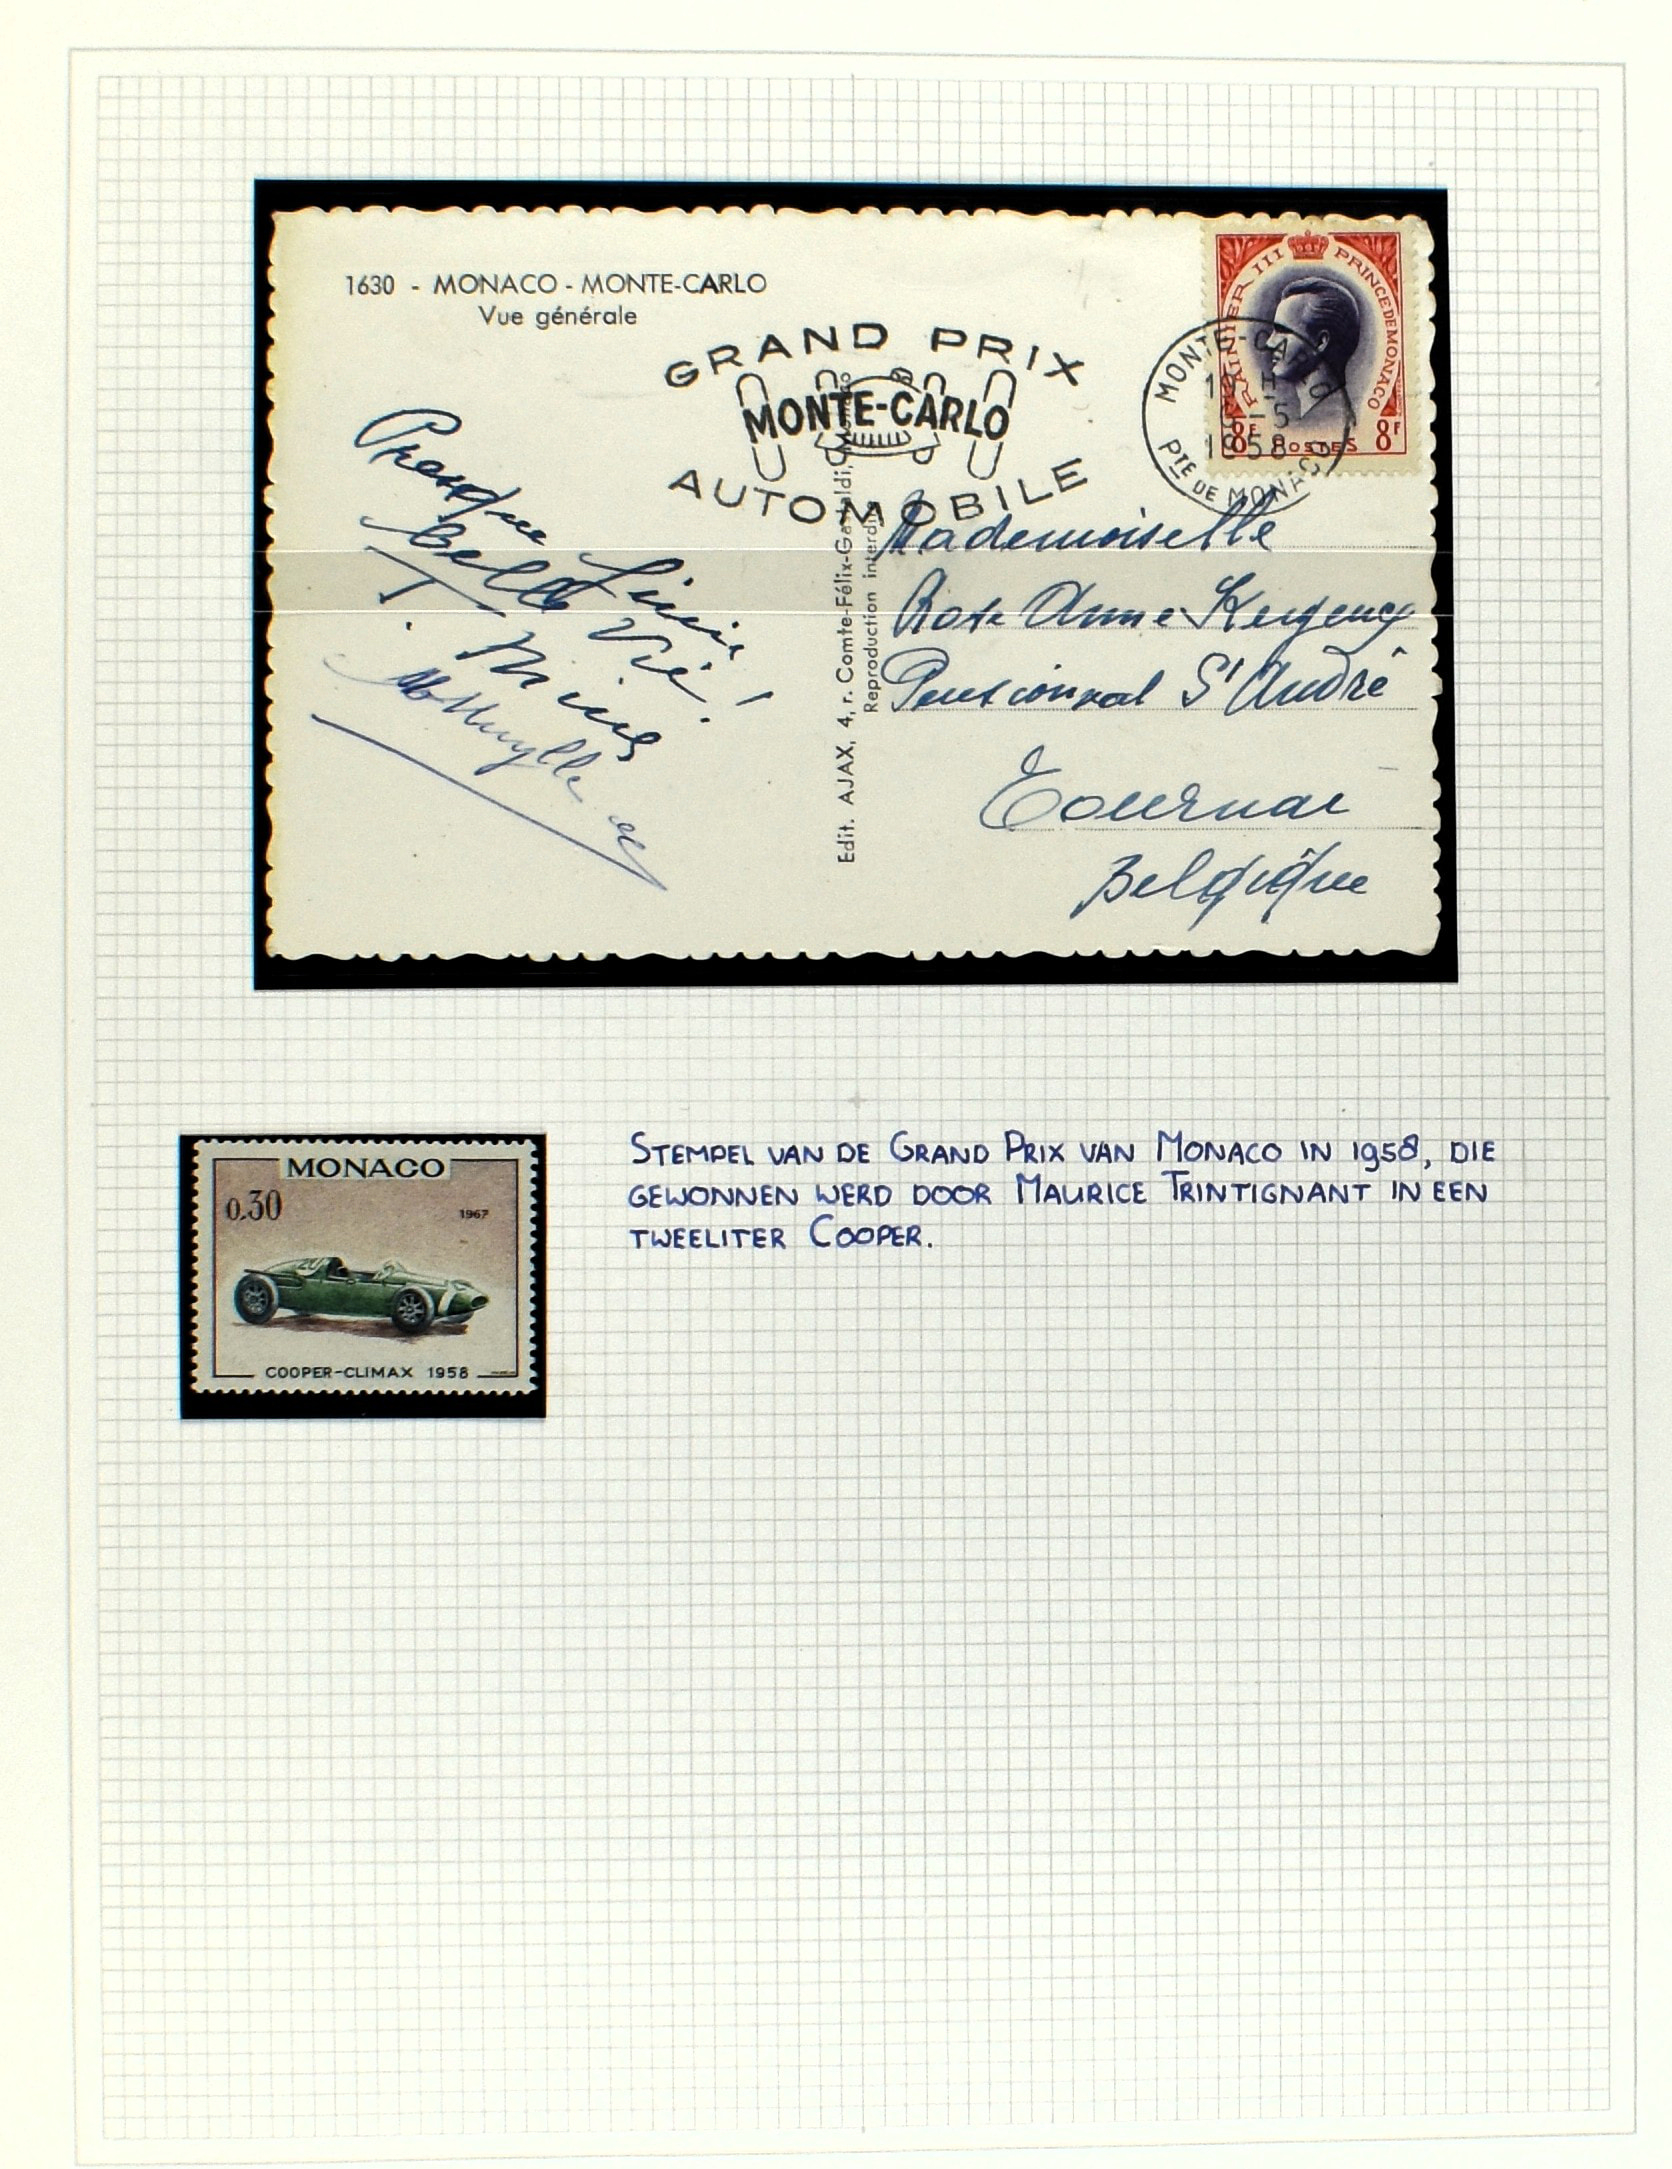 1630 - MONACO - MONTE-CARLO
Vue générale
GRAND PRIX
MONTE-CARLO
AUTOMOBILE
RAINIER III PRINCE DE MONACO
8F POSTES 8F
MONTE-CARLO
19 H
9-5
1958
PTE DE MONACO
Presque
Belle Vie!
Edit. AJAX, 4, r. Comte-Félix-Gastaldi, Monaco
Reproduction interdite
Mademoiselle
Rose Anne
Pensionnat St André
Tournai
Belgique
MONACO
0.30 1967
20
COOPER-CLIMAX 1958
STEMPEL VAN DE GRAND PRIX VAN MONACO IN 1958, DIE
GEWONNEN WERD DOOR MAURICE TRINTIGNANT IN EEN
TWEELITER COOPER.